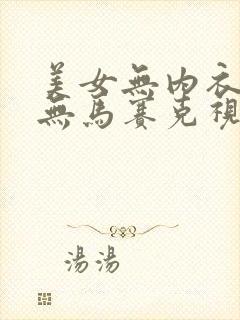 美女無內衣
無馬賽克視
湯湯